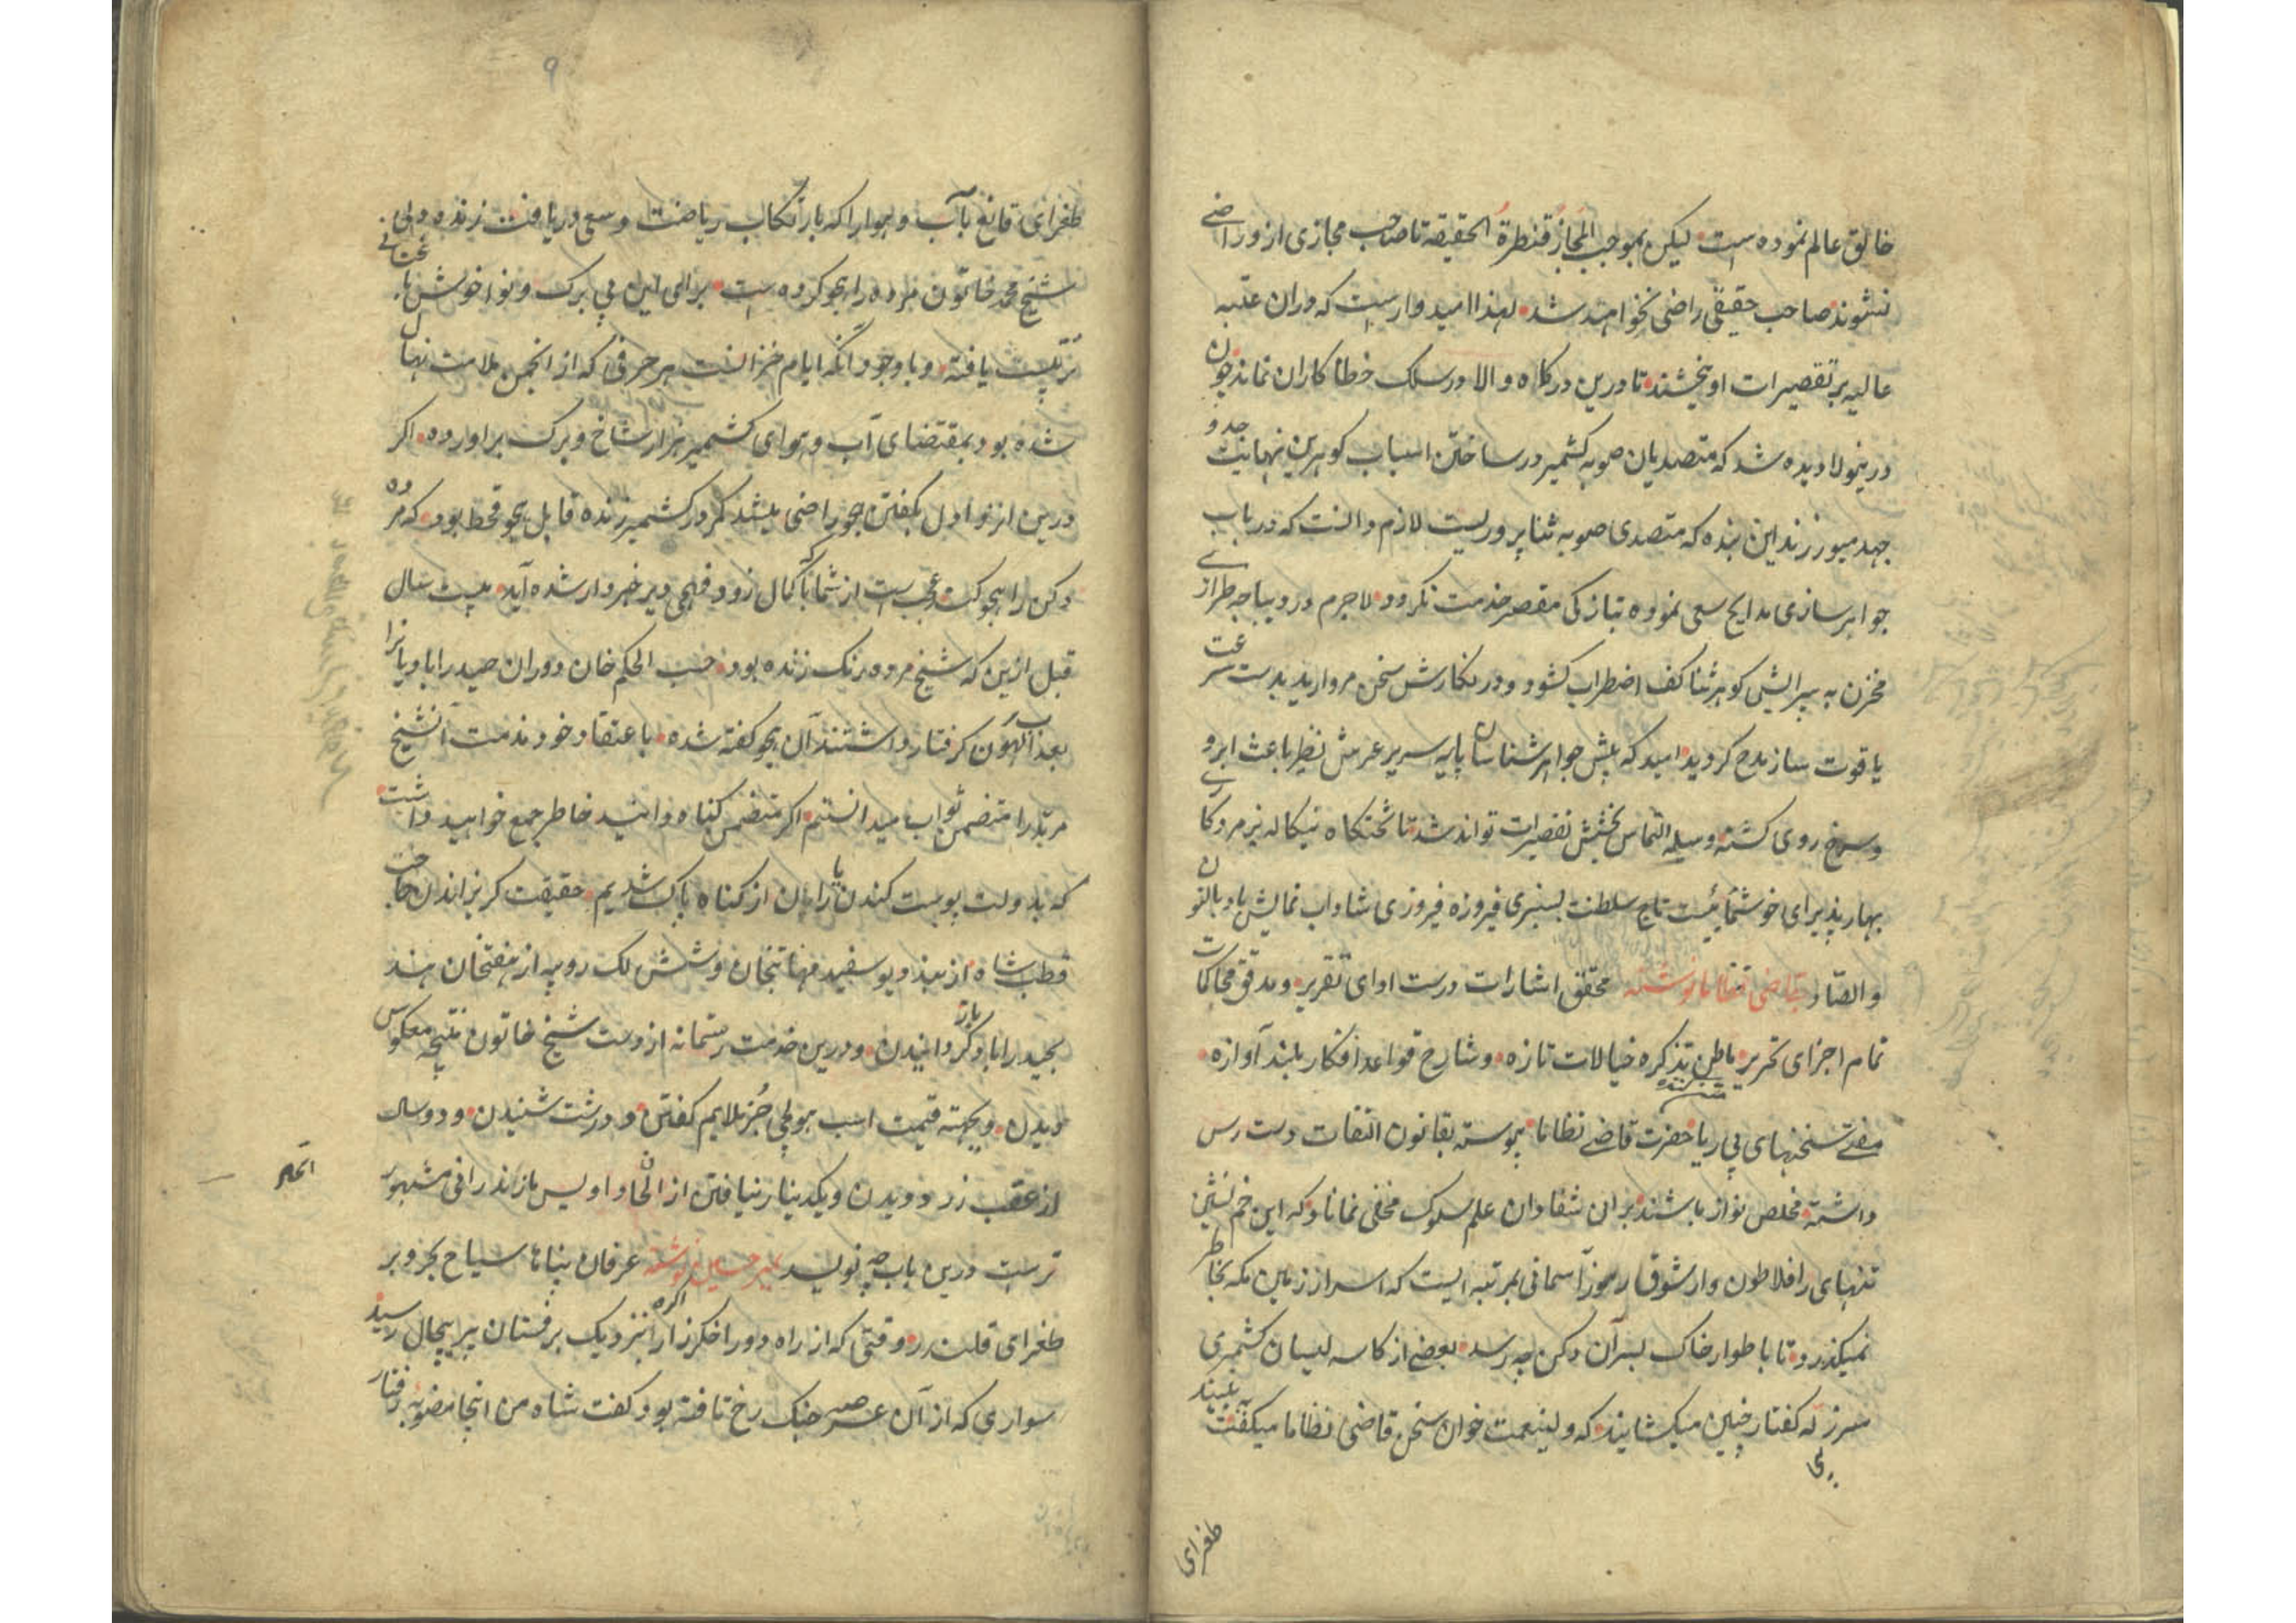 خالق عالم نموده است لیکن بموجب المجاز قنطرة الحقیقه تا صاحب مجازی ازو راضی
نشوند صاحب حقیقی راضی نخواهد شد لهذا امیدوارست که دران عتبه
عالیه بر تقصیرات او بخشند تا درین درکاه والا در سلک خطا کاران نماند چون
درینولا دیده شد که متصدیان صوبه کشمیر در ساختن اسباب کوهرین نهایت جد و
جهد میورزند این بنده که متصدی صوبه ثنا پروریست لازم دانست که در باب
جواهر سازی مدایح سعی نموده بتازکی مقصر خدمت نکردد لاجرم در دیباجه طرازی
مخزن به پیرایش کوهر ثنا کف اضطراب کشود و در نکارش سخن مروارید بدست سرعت
یاقوت ساز مدح کردید امید که پیش جواهر شناسان پایه سریر عرش نظیر باعث ابرو
و سرخ روی کشته وسیله التماس بخشش تقصیرات تواند شد تا تختکاه بنکاله بزمردکاری
بهار پذیرای خوشنمائیست تاج سلطنت بسبزی فیروزه فیروزی شاداب نمایش باد بالنون
والصاد بقاضی نظاما نوشته محقق اشارات درست ادای تقریر و مدقق محاکمات
تمام اجزای تحریر باطن تذکره خیالات تازه و شارح قواعد افکار بلند آوازه
مفتی نسخهای بی ریا حضرت قاضی نظاما پیوسته بقانون التفات دست رس
داشته مخلص نواز باشند بران شفا دان علم سلوک مخفی نماناد که این خم نشین
تنهای را فلاطون وار شوق رموز آسمانی بمرتبه ایست که اسرار زمین مکه بخاطر
نمیکذرد تا باطوار خاک بسران دکن چه رسد بعضی از کاسه لیسان کشمیری
سرزله کفتار چنین میکشایند که ولینعمت خوان سخن قاضی نظاما میکفتند
طغرای
۹
طغرای قانع بآب و هوا را که بارتکاب ریاضت و سعی دریافت زنده دلی
شیخ محمد خاتون مرده را هجو کرده است برای این بی برک و نوا خوش
ترتیب یافته و با وجود آنکه ایام خزانست هر حرفی که از انجمن ملامت نهال
شده بود بمقتضای آب و هوای کشمیر هزار شاخ و برک براورده اکر
درین ارزو ادل بکفتن هجو راضی میشد مکر در کشمیر زنده قابل هجو قحط بود که مرده
دکن را هجو کند عجب است از شما که با کمال زود فهمی دیر خبردار شده آید بیست سال
قبل ازین که شیخ مرده رنک زنده بود حسب الحکم خان دوران حیدرابادیانرا
بعذاب الهون کرفتار داشتند آن هجو کفته شده باعتقاد خود مذمت آنشیخ
مرتد را متضمن ثواب میدانستم اکر متضمن کناه دانید خاطر جمع خواهید داشت
که بدولت پوست کندن یاراان از کناه پاک شدیم حقیقت کریزاندن حاجت
قطب شاه از سفید مهابتخان و شش لک روپیه از هفتخان هند
بحیدراباد باز کردانیدن و درین خدمت رستمانه از دست شیخ خاتون نتیجه معکوس
دیدن و بجهته قیمت اسب هولی جز ملایم کفتن و درشت شنیدن و دو سال
از عقب زر دویدن و یکدینار نیافتن از الحاد اویس مازندرانی مشهور
ترست درین باب چه نویسد بمیر حسین نوشته عرفان پناها سیاح بحر و بر
طغرای قلندر وقتی که از راه دور اخکرزار اکره نزدیک برفستان پیر پنجال رسید
سواری که از آن عرصه جنک رخ تافته بود کفت شاه من اینجا منصوبه رفتار